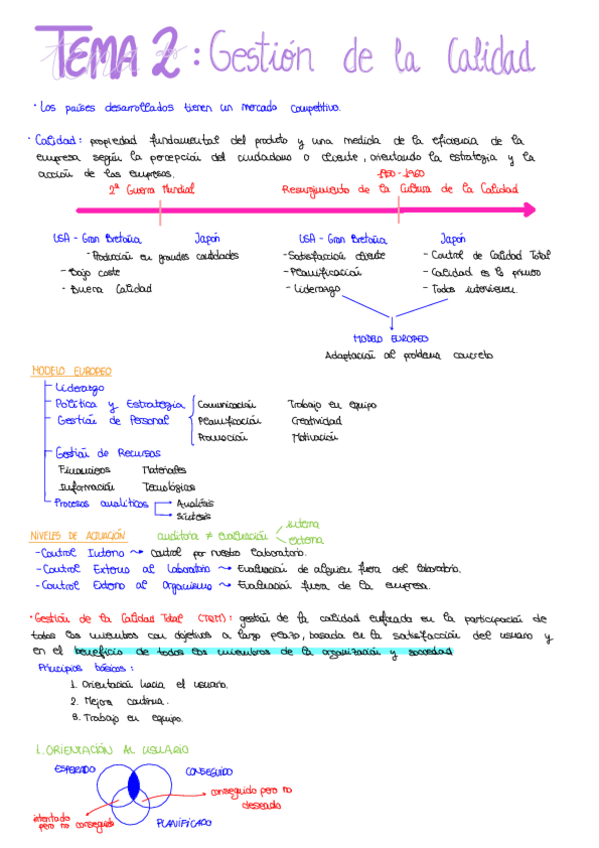 TEMA 2: Gestión de la Calidad
· Los países desarrollados tienen un mercado competitivo.
· Calidad: propiedad fundamental del producto y una medida de la eficiencia de la
empresa según la percepción del ciudadano o cliente, orientando la estrategia y la
acción de las empresas.
1950-1960
2ª Guerra Mundial Resurgimiento de la Cultura de la Calidad
USA - Gran Bretaña Japón USA - Gran Bretaña Japón
- Producción en grandes cantidades - Satisfacción cliente - Control de Calidad Total
- Bajo coste - Planificación - Calidad es lo primero
- Buena Calidad - Liderazgo - Todos intervienen.
MODELO EUROPEO
Adaptación al problema concreto
MODELO EUROPEO
Liderazgo
Política y Estrategia Comunicación Trabajo en equipo
Gestión de Personal Planificación Creatividad
Promoción Motivación
Gestión de Recursos
Financieros Materiales
Información Tecnológicos
Procesos analíticos Análisis
Síntesis
interna
NIVELES DE ACTUACIÓN auditoría ≠ evaluación
externa
- Control Interno → control por nuestro laboratorio.
- Control Externo al Laboratorio → Evaluación de alguien fuera del laboratorio.
- Control Externo al Organismo → Evaluación fuera de la empresa.
· Gestión de la Calidad Total (TQM): gestión de la calidad enfocada en la participación de
todos los miembros con objetivos a largo plazo, basada en la satisfacción del usuario y
en el beneficio de todos los miembros de la organización y sociedad
Principios básicos:
1. Orientación hacia el usuario.
2. Mejora continua.
3. Trabajo en equipo.
1. ORIENTACIÓN AL USUARIO
ESPERADO CONSEGUIDO
conseguido pero no
deseado
intentado
pero no conseguido
PLANIFICADO